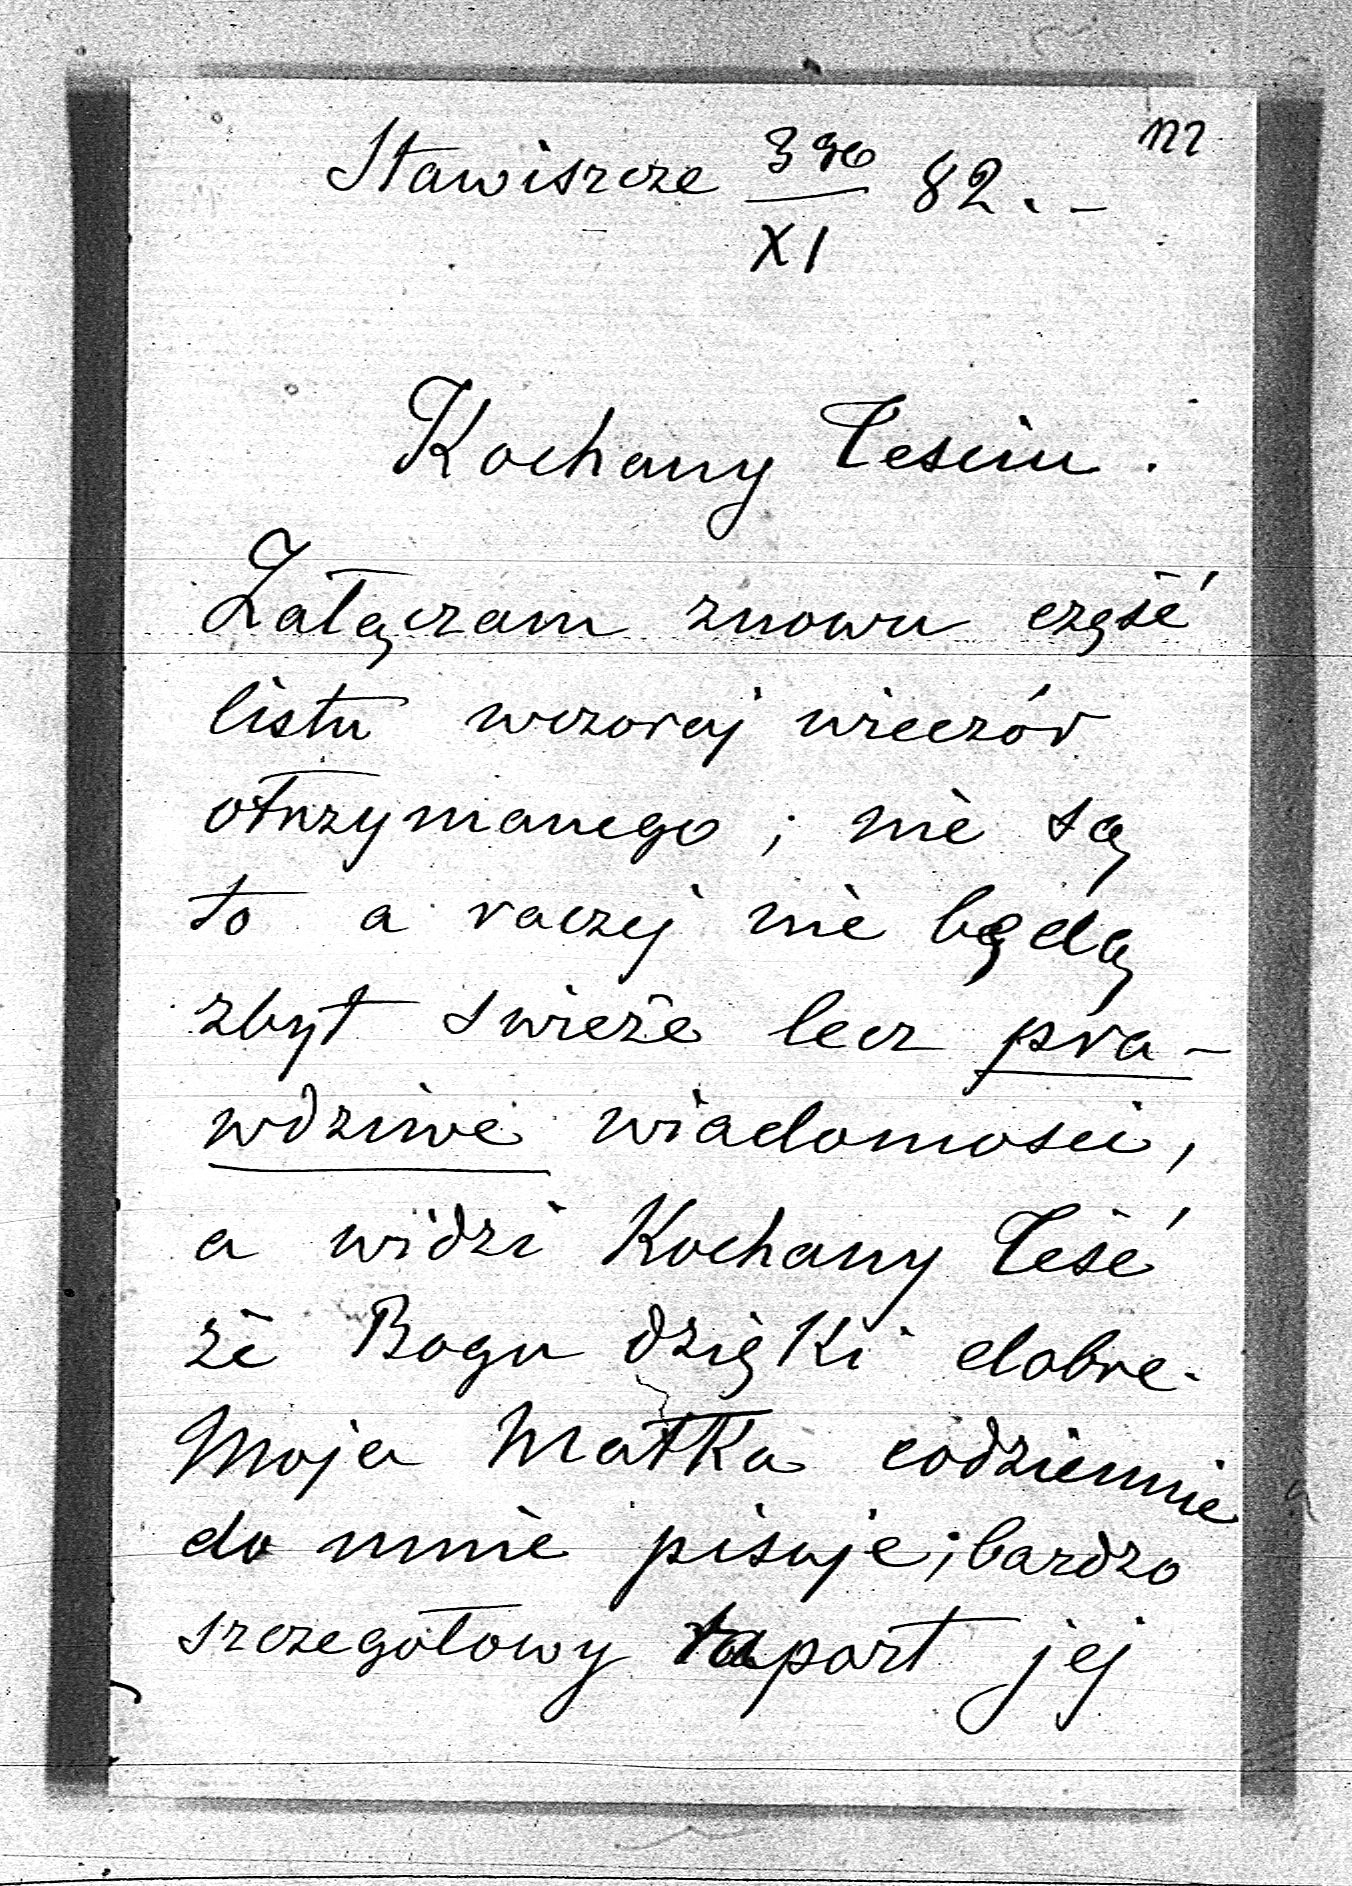 Stawiszcze 3go/XI 82. -
Kochany Teściu.
Załączam znowu część
listu wczoraj wieczór
otrzymanego; nie są
to a raczej nie będą
zbyt świeże lecz pra-
wdziwe wiadomości,
a widzi Kochany Teść
że Bogu dzięki dobre.
Moja Matka codziennie
do mnie pisuje; bardzo
szczegółowy raport jej